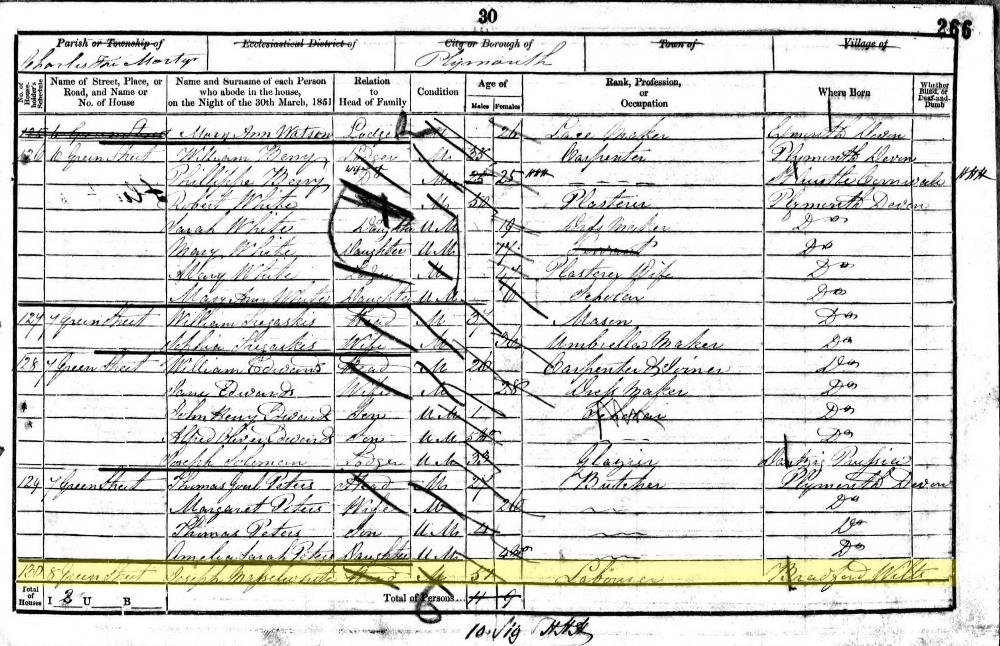 30
266
Parish or Township of
Ecclesiastical District of
City or Borough of
Town of
Village of
Charles the Martyr
Plymouth
No. of House-holder's Schedule
Name of Street, Place, or Road, and Name or No. of House
Name and Surname of each Person who abode in the house, on the Night of the 30th March, 1851
Relation to Head of Family
Condition
Age of
Males Females
Rank, Profession, or Occupation
Where Born
Whether Blind, or Deaf-and-Dumb
Mary Ann Watson Lodger 26 Lace Maker Devon
126 6 Green Street William Berry Lodger M 35 Carpenter Plymouth Devon
Berry Wife M 25
Robert White M Plasterer Plymouth Devon
Sarah White Daughter U M 19 Maker Do
Mary White Daughter U M 17 Do
Mary White Lodger M Plasterer Wife Do
Mary Ann White Daughter U M Scholar Do
127 7 Green Street William Head M Mason Do
Wife M Umbrella Maker Do
128 7 Green Street William Edwards Head M 26 Carpenter & Joiner Do
Jane Edwards Wife M 28 Dress Maker Do
John Henry Edwards Son U M 1 Scholar Do
Alfred Oliver Edwards Son U M Do
Joseph Solomon Lodger U M 33 Glazier Prussia
129 7 Green Street Thomas Peters Head M Butcher Plymouth Devon
Margaret Peters Wife M 26 Do
Thomas Peters Son U M 4 Do
Amelia Sarah Peters Daughter U M Do
130 8 Green Street Joseph Head M Labourer Bradford Wilts
Total of Houses
I 3 U B
Total of Persons
11 9
10 9